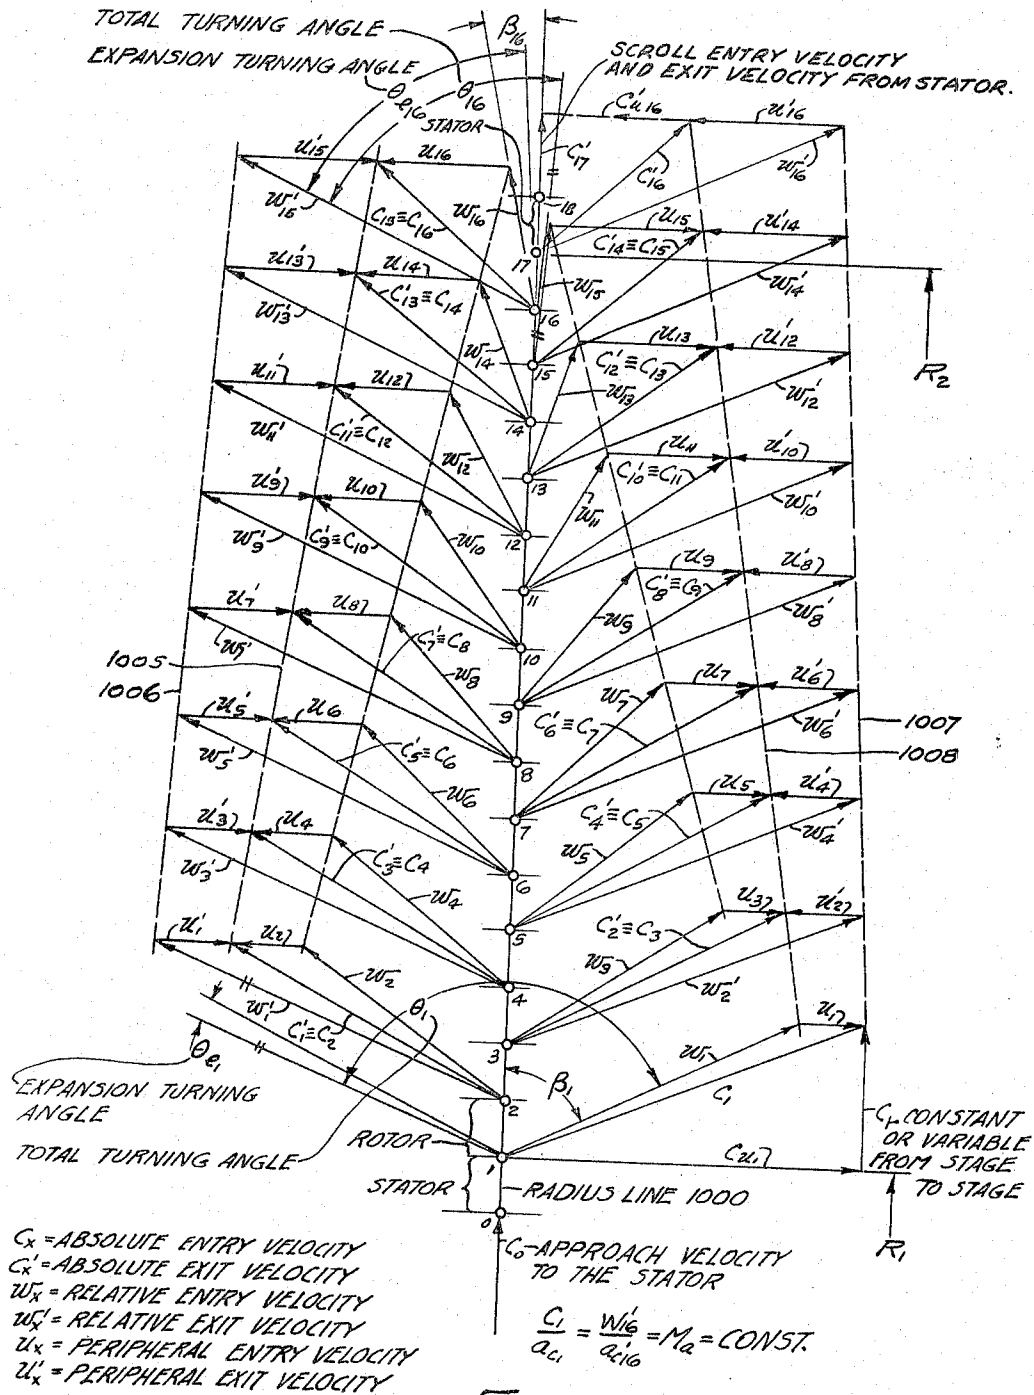 TOTAL TURNING ANGLE
β16
EXPANSION TURNING ANGLE
SCROLL ENTRY VELOCITY
AND EXIT VELOCITY FROM STATOR.
θe16
θ16
STATOR
C'u16
u'16
C'17
C'16
w'16
u'15
u16
w'15
C15≡C16
w16
18
17
u15
u'14
C'14≡C15
w'14
w15
u'13
u14
C'13≡C14
w'13
w14
16
15
R2
u13
u'12
C'12≡C13
w'12
w13
u'11
u12
C'11≡C12
w'11
w12
14
13
u11
u'10
C'10≡C11
w'10
w11
u'9
u10
C'9≡C10
w'9
w10
12
11
u9
u'8
C'8≡C9
w'8
w9
u'7
u8
C'7≡C8
w'7
w8
10
9
1005
1006
u7
u'6
w7
C'6≡C7
w'6
1007
1008
u'5
u6
C'5≡C6
w'5
w6
8
7
u5
u'4
C'4≡C5
w'4
w5
u'3
u4
C'3≡C4
w'3
w4
6
5
u3
u'2
C'2≡C3
w3
w'2
u'1
u2
w2
w'1
C'1≡C2
4
3
θ1
u1
w1
C1
β1
θe1
EXPANSION TURNING
ANGLE
2
ROTOR
TOTAL TURNING ANGLE
1
Cu1
Cr CONSTANT
OR VARIABLE
FROM STAGE
TO STAGE
STATOR
RADIUS LINE 1000
0
R1
C0-APPROACH VELOCITY
TO THE STATOR
Cx = ABSOLUTE ENTRY VELOCITY
C'x = ABSOLUTE EXIT VELOCITY
wx = RELATIVE ENTRY VELOCITY
w'x = RELATIVE EXIT VELOCITY
ux = PERIPHERAL ENTRY VELOCITY
u'x = PERIPHERAL EXIT VELOCITY
C1/aC1 = w'16/a'C16 = Ma = CONST.